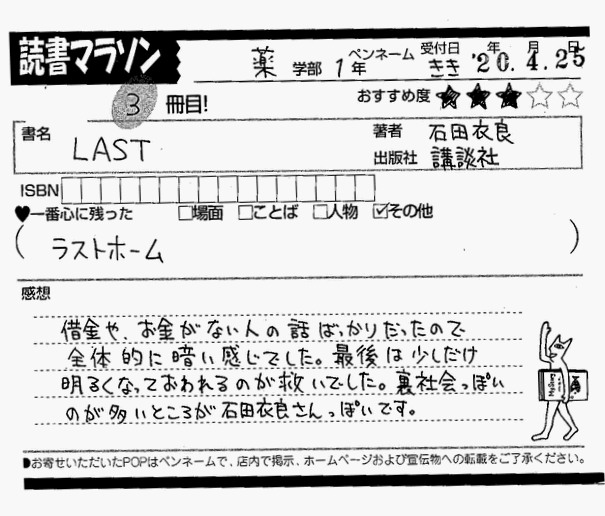 読書マラソン
薬 学部 1年 ペンネーム きき 受付日 '20年4月25日
3 冊目! おすすめ度 ★★★☆☆
書名 LAST 著者 石田衣良
出版社 講談社
ISBN
♥一番心に残った □場面 □ことば □人物 ☑その他
(ラストホーム)
感想
借金や、お金がない人の話ばっかりだったので
全体的に暗い感じでした。最後は少しだけ
明るくなっておわれるのが救いでした。裏社会っぽい
のが多いところが石田衣良さんっぽいです。
▶お寄せいただいたPOPはペンネームで、店内で掲示、ホームページおよび宣伝物への転載をご了承ください。